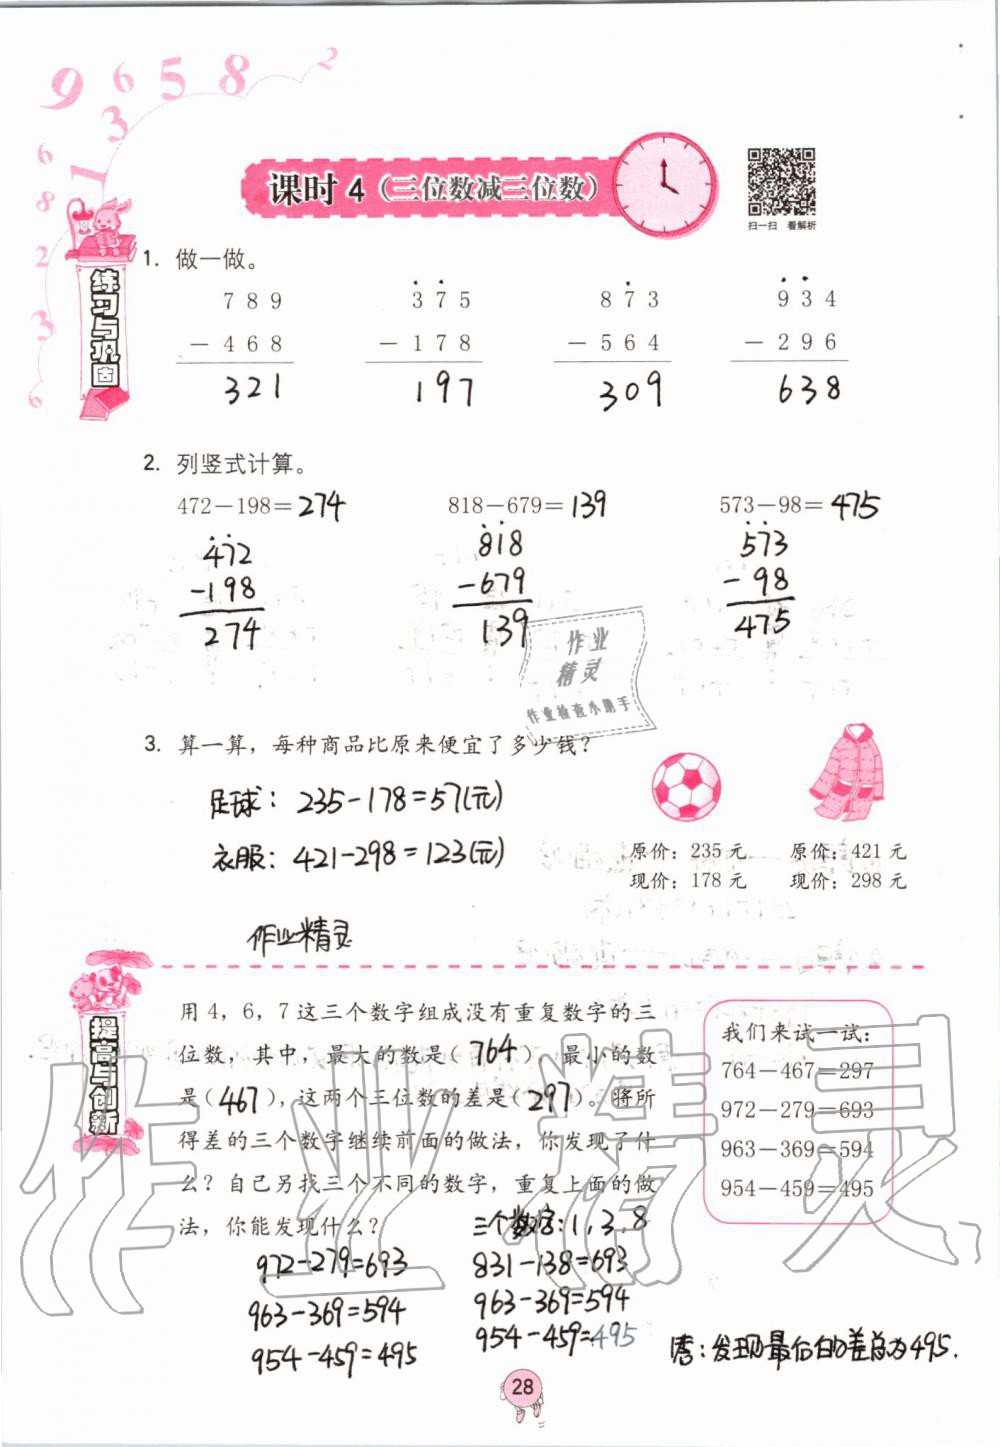 9 6 5 8 2
3
1
6
8
2
3
6
课时 4（三位数减三位数）
扫一扫 看解析
练习与巩固
1. 做一做。
789 375 873 934
－468 －178 －564 －296
321 197 309 638
2. 列竖式计算。
472－198＝274 818－679＝139 573－98＝475
472 818 573
－198 －679 －98
274 139 475
作业
精灵
作业检查小助手
3. 算一算，每种商品比原来便宜了多少钱？
足球：235－178＝57(元)
衣服：421－298＝123(元)
原价：235 元 原价：421 元
现价：178 元 现价：298 元
作业精灵
提高与创新
用 4，6，7 这三个数字组成没有重复数字的三
位数，其中，最大的数是（764），最小的数
是（467），这两个三位数的差是（297）。将所
得差的三个数字继续前面的做法，你发现了什
么？自己另找三个不同的数字，重复上面的做
法，你能发现什么？
我们来试一试：
764－467＝297
972－279＝693
963－369＝594
954－459＝495
972－279＝693
963－369＝594
954－459＝495
三个数字：1，3，8
831－138＝693
963－369＝594
954－459＝495
答：发现最后的差总为495.
28
作业精灵